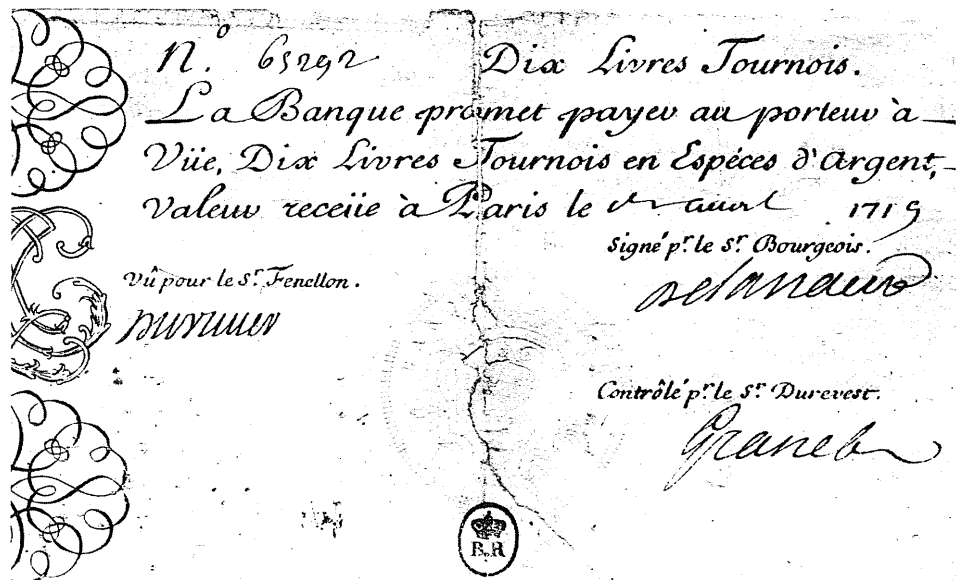 N.º 65292 Dix Livres Tournois.
La Banque promet payer au porteur à
Vüe, Dix Livres Tournois en Espéces d'Argent,
valeur receüe à Paris le 1719
Signé p.r le S.r Bourgeois.
Vû pour le S.r Fenellon.
Contrôlé p.r le S.r Durevest.
Granet
B.R